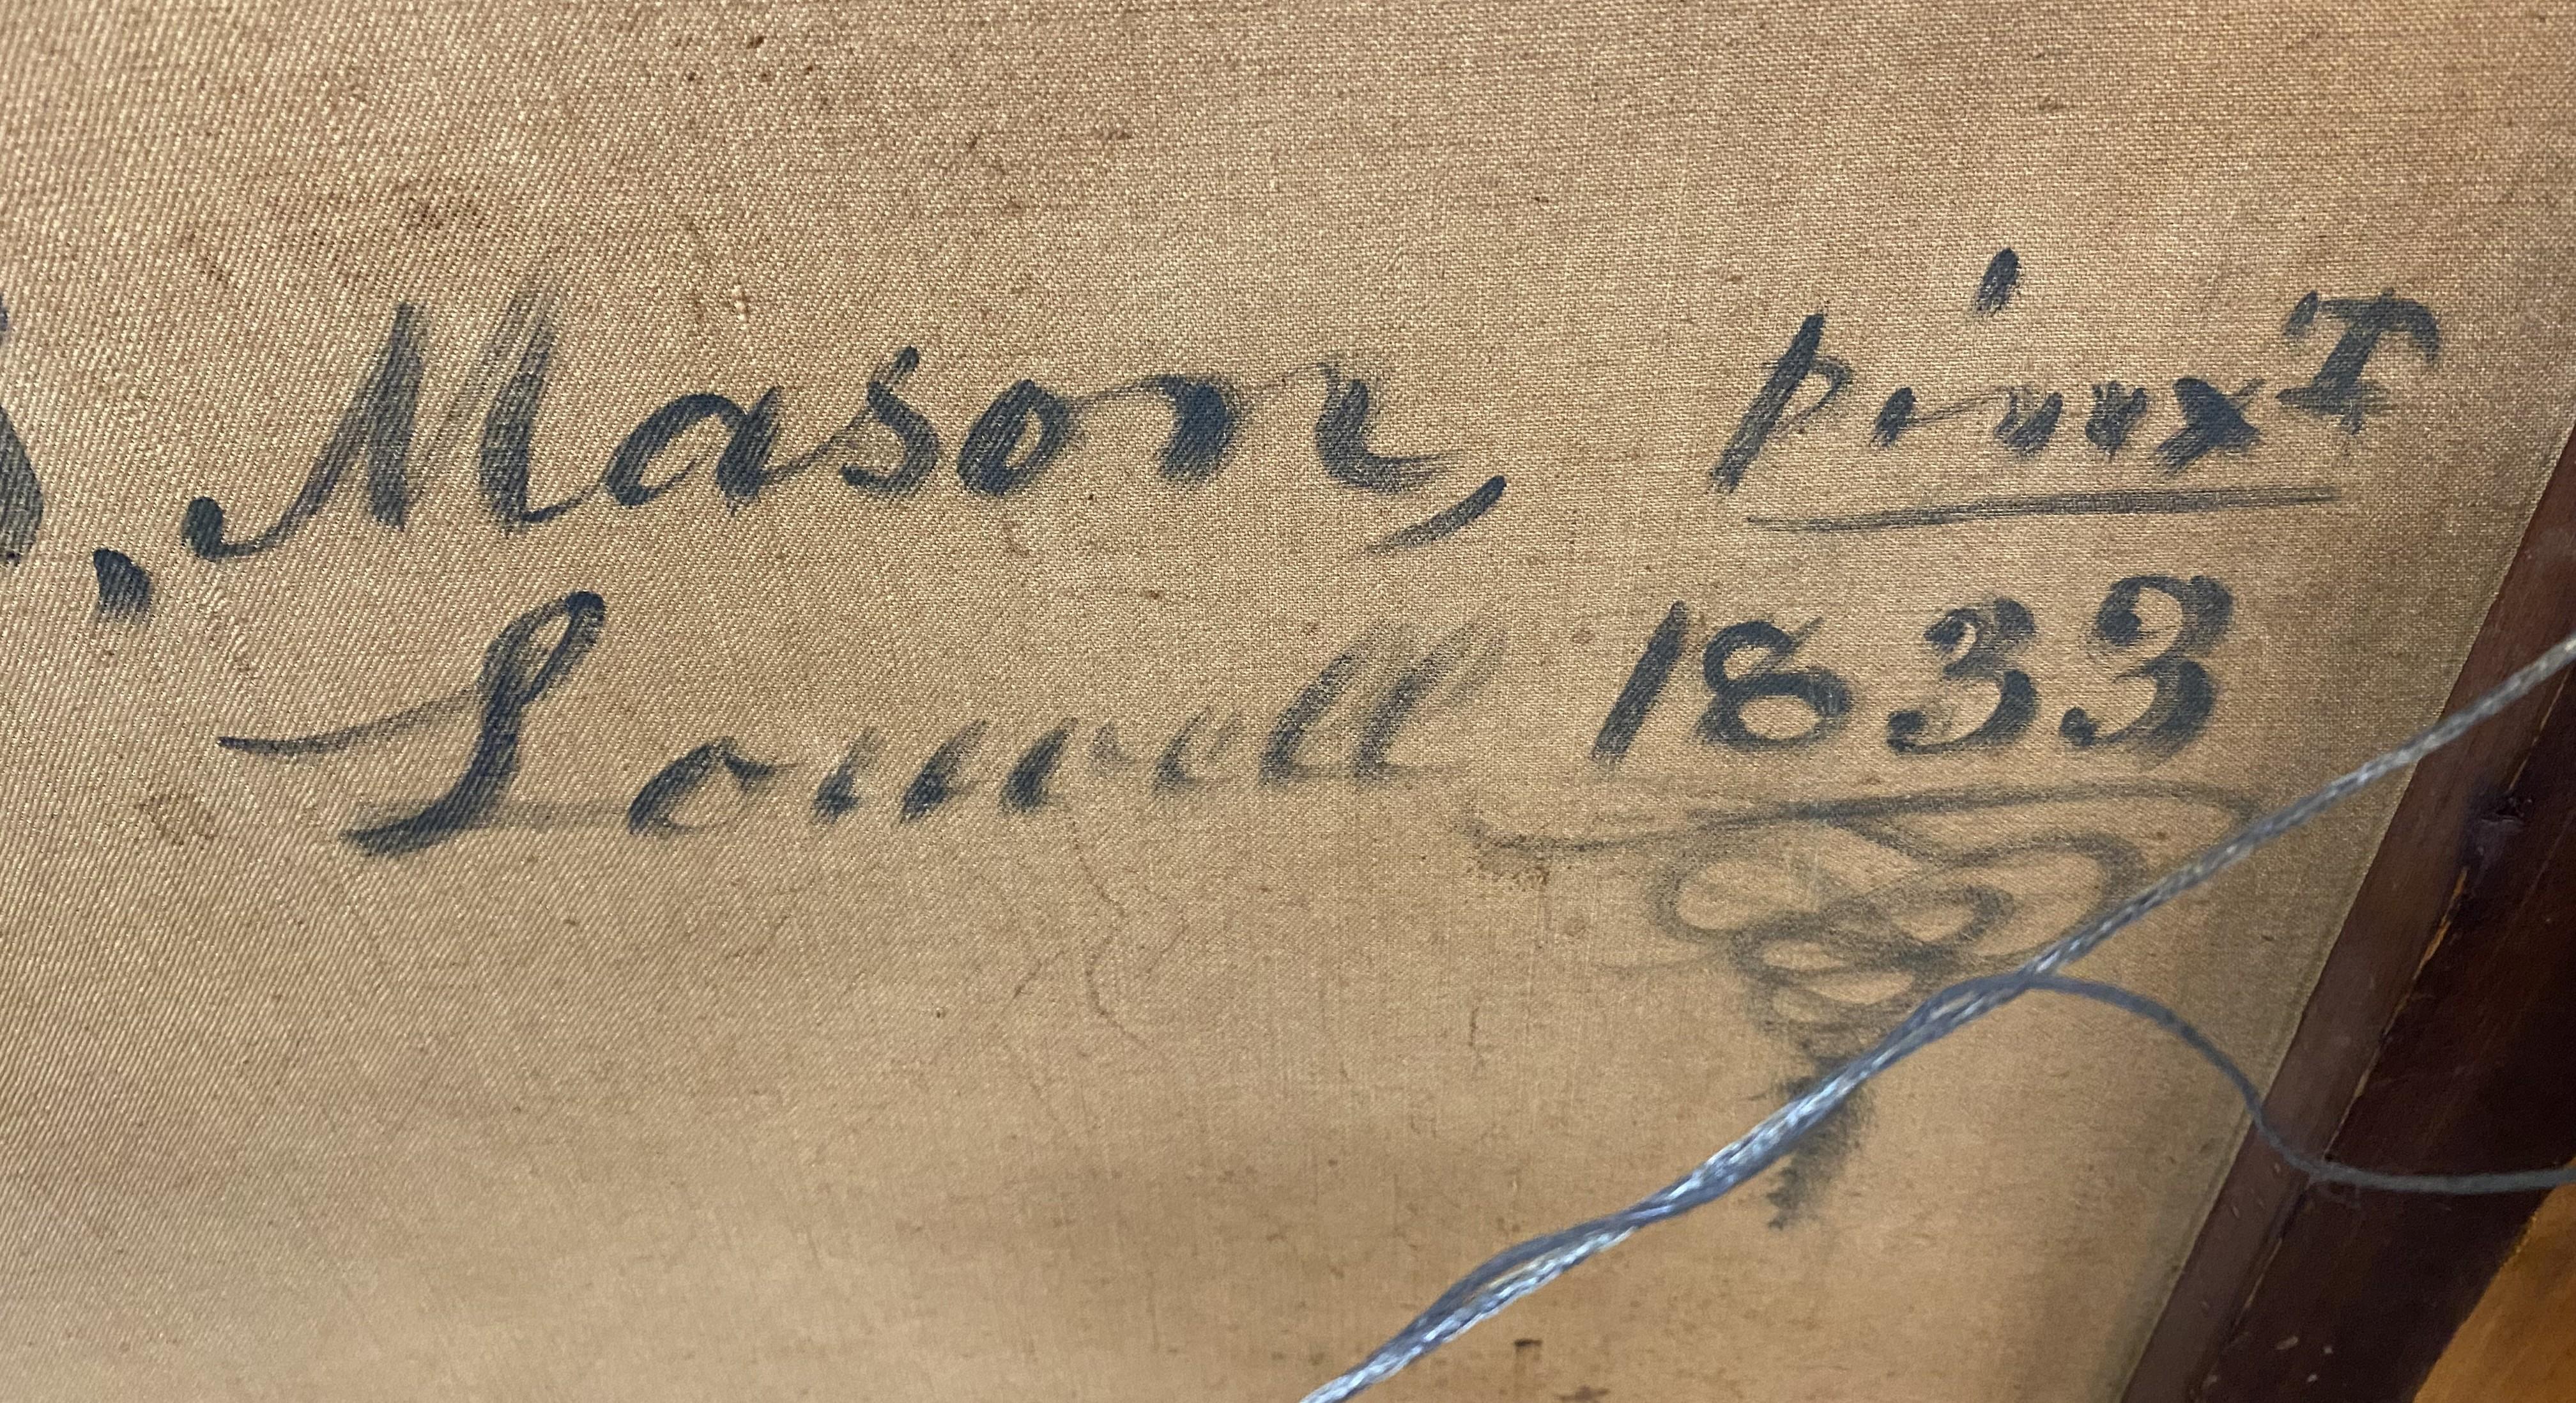 . Mason, pinxT
Lowell 1833